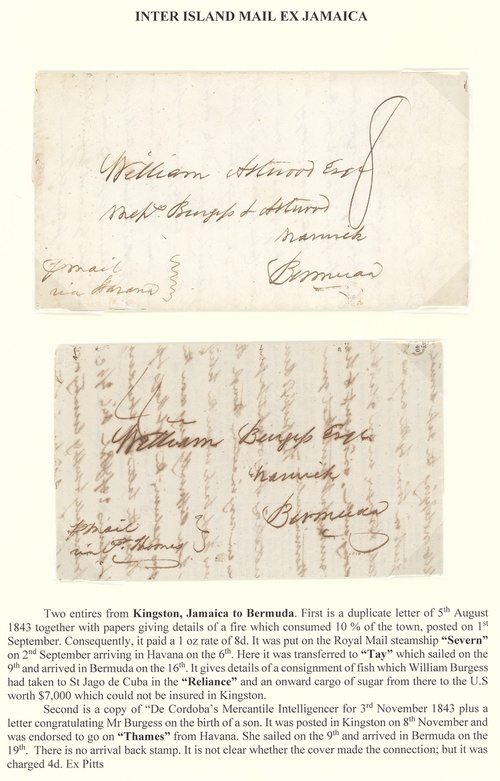 INTER ISLAND MAIL EX JAMAICA
8
William Astwood Esqr
Messrs Burgess & Astwood
Warwick
Bermuda
p mail
via Havana
4
William Burgess Esqr
Warwick
Bermuda
p mail
via St. Thomas
Two entires from Kingston, Jamaica to Bermuda. First is a duplicate letter of 5th August
1843 together with papers giving details of a fire which consumed 10 % of the town, posted on 1st
September. Consequently, it paid a 1 oz rate of 8d. It was put on the Royal Mail steamship “Severn”
on 2nd September arriving in Havana on the 6th. Here it was transferred to “Tay” which sailed on the
9th and arrived in Bermuda on the 16th. It gives details of a consignment of fish which William Burgess
had taken to St Jago de Cuba in the “Reliance” and an onward cargo of sugar from there to the U.S
worth $7,000 which could not be insured in Kingston.
Second is a copy of “De Cordoba’s Mercantile Intelligencer for 3rd November 1843 plus a
letter congratulating Mr Burgess on the birth of a son. It was posted in Kingston on 8th November and
was endorsed to go on “Thames” from Havana. She sailed on the 9th and arrived in Bermuda on the
19th. There is no arrival back stamp. It is not clear whether the cover made the connection; but it was
charged 4d. Ex Pitts